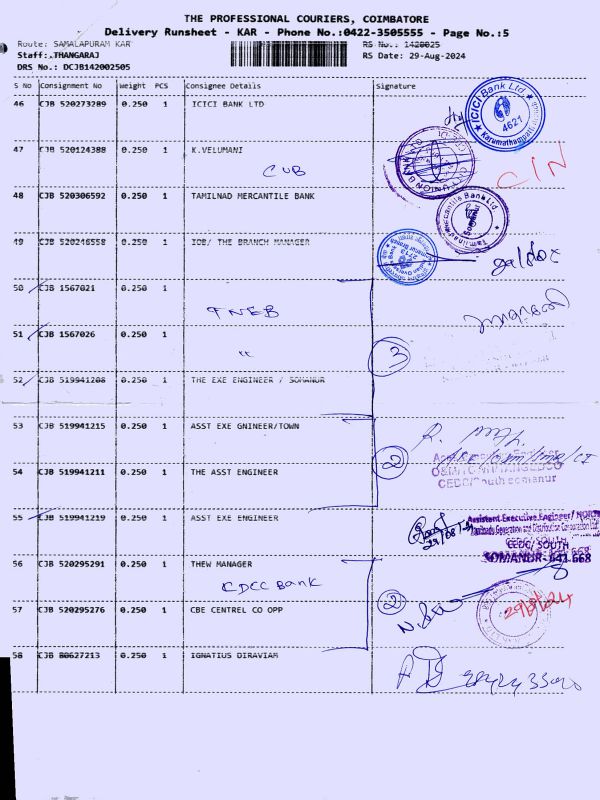 THE PROFESSIONAL COURIERS, COIMBATORE
Delivery Runsheet - KAR - Phone No.:0422-3505555 - Page No.:5
Route: SAMALAPURAM KAR RS No.: 1428025
Staff: THANGARAJ RS Date: 29-Aug-2024
DRS No.: DCJB142002505
S No Consignment No Weight PCS Consignee Details Signature
46 CJB 520273289 0.250 1 ICICI BANK LTD
ICICI Bank Ltd.
4621
Karumathampatti
47 CJB 520124388 0.250 1 K.VELUMANI
CUB
48 CJB 520306592 0.250 1 TAMILNAD MERCANTILE BANK
Tamilnad Mercantile Bank Ltd
49 CJB 520246558 0.250 1 IOB/ THE BRANCH MANAGER
50 CJB 1567021 0.250 1
TNEB
51 CJB 1567026 0.250 1
"
3
52 CJB 519941208 0.250 1 THE EXE ENGINEER / SOMANUR
53 CJB 519941215 0.250 1 ASST EXE GNINEER/TOWN
2
CEDC/South somanur
54 CJB 519941211 0.250 1 THE ASST ENGINEER
55 CJB 519941219 0.250 1 ASST EXE ENGINEER
Assistent Executive Engineer/ NORTH
Tamilnadu Generation and Distribution Corporation Ltd.
CEDC/ SOUTH
SOMANUR-641 668
56 CJB 520295291 0.250 1 THEW MANAGER
CDCC Bank
2
29/8/24
57 CJB 520295276 0.250 1 CBE CENTREL CO OPP
58 CJB B0627213 0.250 1 IGNATIUS DIRAVIAM